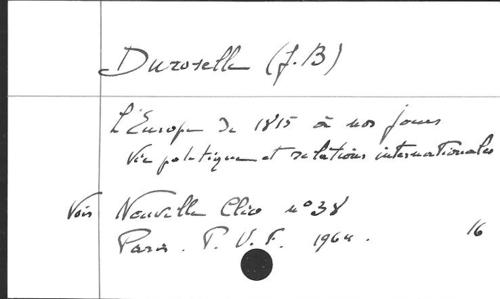 Duroselle (J.B)
L'Europe de 1815 à nos jours
Vie politique et relations internationales
Voir Nouvelle Clio n°38
Paris. P.U.F. 1964. 16